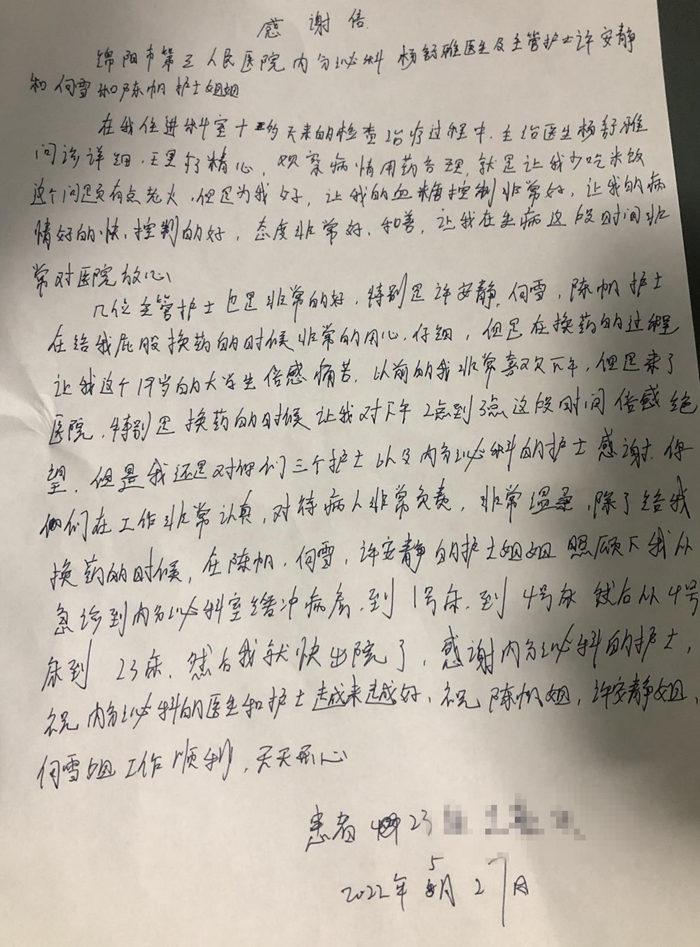 感谢信
绵阳市第三人民医院内分泌科 杨舒雅医生及主管护士许安静
和何雪和陈帆护士姐姐
在我住进科室十多天来的检查治疗过程中,主治医生杨舒雅
问诊详细,主要精心,观察病情用药合理,就是让我少吃米饭
这个问题有点老火,但是为我好,让我的血糖控制非常好,让我的病
情好的快,控制的好,态度非常好,和善,让我在生病这段时间非
常对医院放心
几位主管护士也是非常的好,特别是许安静,何雪,陈帆护士
在给我屁股换药的时候非常的用心,仔细,但是在换药的过程
让我这个19岁的大学生倍感痛苦,以前的我非常喜欢下午,但是来了
医院,特别是换药的时候让我对下午2点到3点这段时间倍感绝
望,但是我还是对她们三个护士以及内分泌科的护士感谢,你
们们在工作非常认真,对待病人非常负责,非常温柔,除了给我
换药的时候,在陈帆,何雪,许安静的护士姐姐照顾下我从
急诊到内分泌科室缓冲病房,到1号床,到4号床然后从4号
床到23床,然后我就快出院了,感谢内分泌科的护士,
祝内分泌科的医生和护士越来越好,祝陈帆姐,许安静姐,
何雪姐工作顺利,天天开心
患者 23
2022年5月27日